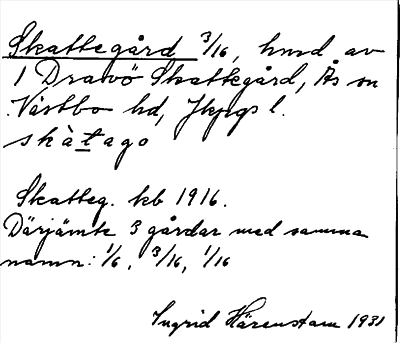 Skattegård 3/16, hmd av
1 Dravö Skattegård, Ås sn
Västbo hd, Jkpgs l.
skàtago
Skatteg. kb 1916.
Därjämte 3 gårdar med samma
namn: 1/6, 3/16, 1/16
Ingrid Härenstam 1931